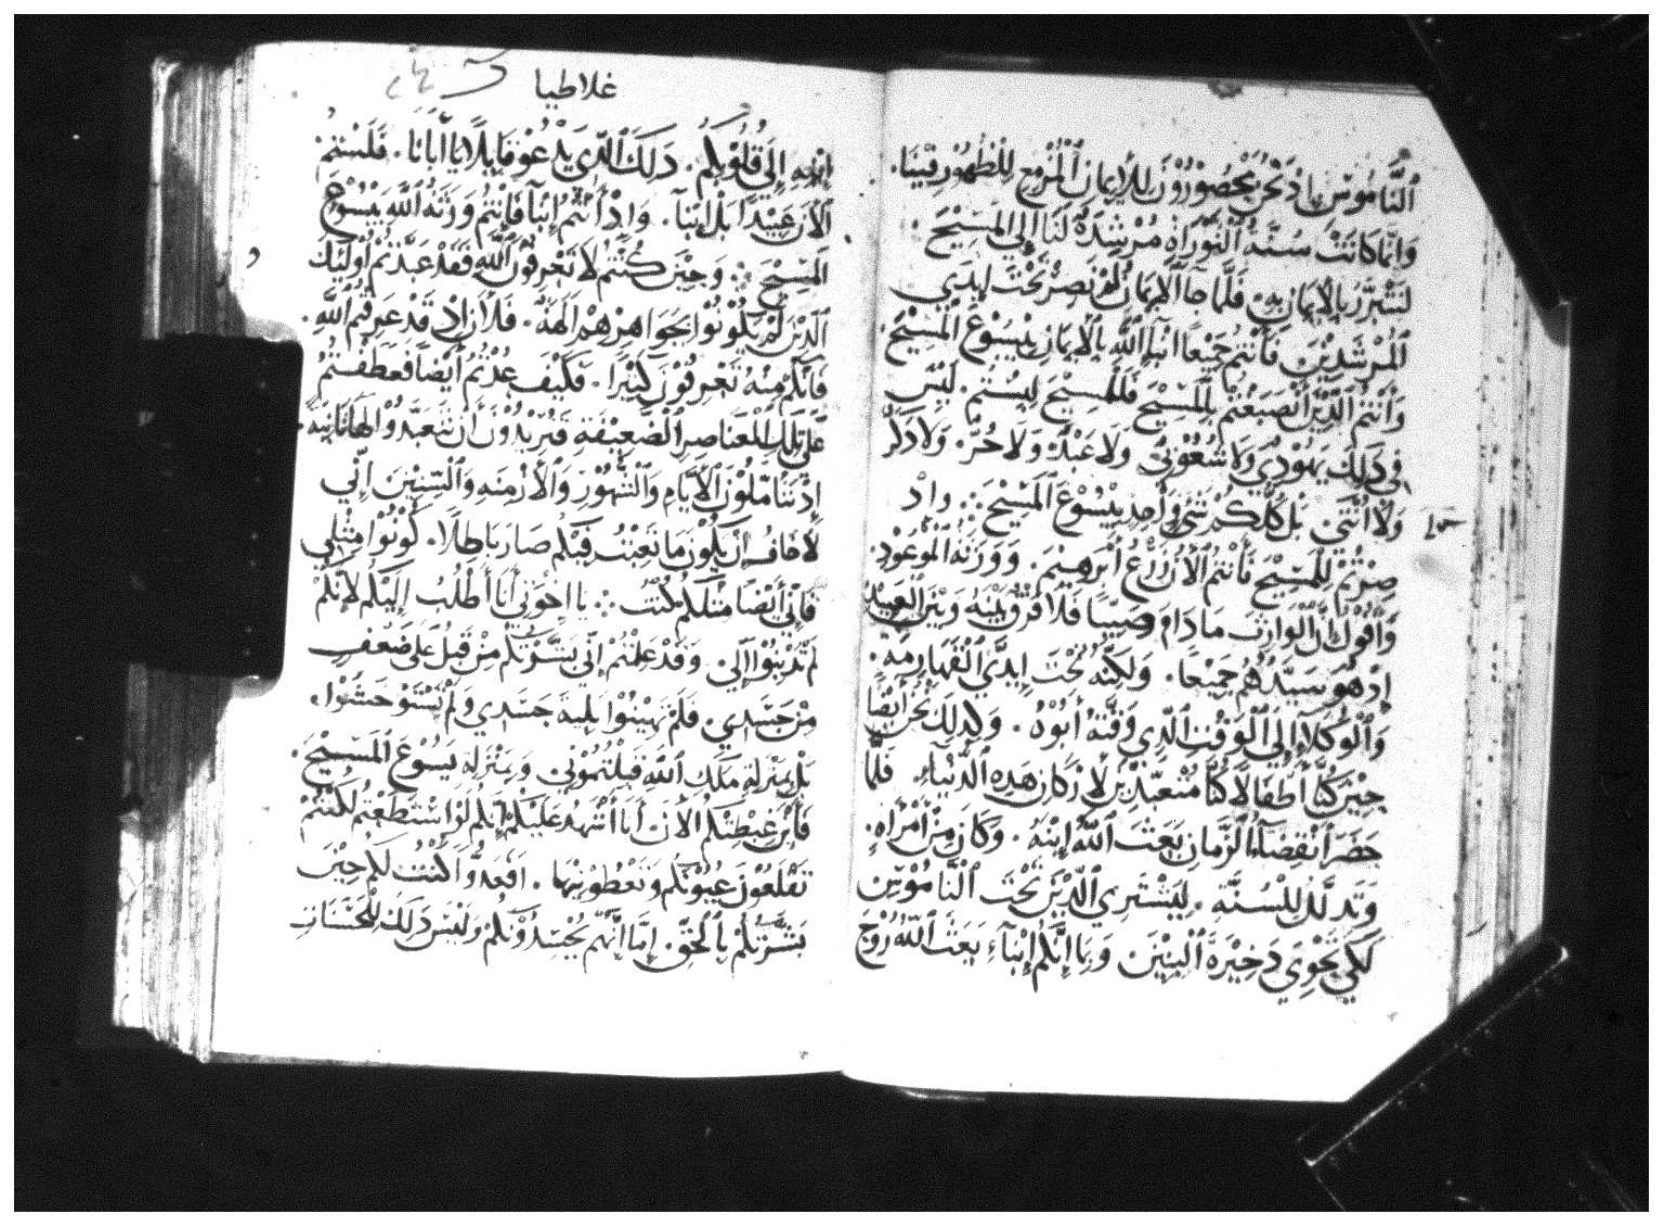 اَلنَّامُوْسِ اِذ نَحْنُ مَحْصُوْرُوْنَ لِلْأِيْمَانِ ٱلْمُزْمِعِ لِلظُهُوْرِ فِيْنَا.
وَاِنَّمَا كَانَتْ سُنَّةُ ٱلتَّوْرَاةِ مُرْشِدَةً لَنَا إِلى المَسِيْحَ.
لِنَتَبَرَّرَ بِالْأِيْمَانِ بِهِ. فَلَمَّا جَآ الْإِيْمَانُ لَمْ نَصِرْ تَحْتَ اِيْدِي
اَلْمُرْشِدِيْنَ فَأَنْتُمْ جَمِيْعًا اَبْنَآءُ ٱللَّهِ بِالْإِيْمَانِ بِيَسُوْعَ الْمَسِيْحَ.
وَأَنْتُمُ الَّذِيْنَ أَنْصَبَغْتُمْ بِالْمَسِيْحِ فَلِلْمَسِيْحَ لَبِسْتُمْ. لَيْسَ
فِي ذَلِكَ يَهُوْدِيٌ وَلَا شُعُوْبِيٌ وَلَا عَبْدٌ. وَلَا حُرٌّ. وَلَا ذَكَرٌ
وَلَا أُنْثَى. بَلْ كُلُّكُمْ شَيٌ وَاْحِدٌ بِيْسُوْعَ الْمَسِيْحَ: وَاِذْ
صِرْتُمْ لِلْمَسِيْحِ فَأَنْتُمُ الْأَنَ زَرْعُ أَبْرَهِيْمَ. وَوَرَثَةُ الْمَوْعُوْدِ.
وَأَقُوْلُ اِنَّ الْوَارِثَ مَا دَامَ صَبِيًا فَلَا فَرْقٌ بَيْنَهُ وَبَيْنَ الْعَبِيْدُ
اِذْ هُوَ سَيِّدُهُمْ جَمِيْعًا. وَلَكِنَّهُ تَحْتَ اِيْدِيَّ الْقَهَارِمَةِ.
وَٱلْوُكَلَآءِ إِلَى الْوَقْتِ الَّذِي وَقَّتَهُ أَبُوْهُ. وَكَذَلِكَ نَحْنُ أَيْضًا
حِيْنَ كُنَّا أَطْفَالًا كُنَّا مُتَعَبِّدِيْنَ لِأَرْكَانِ هَذِهِ الدُّنْيَاءِ فَلَمَّا
حَضَرَ أَنْقِضَآءُ الْزَّمَانِ بَعَثَ اللَّهُ اِبْنَهُ. وَكَانَ مِنْ أَمْرَأَةٍ.
وَتَذَلَّلَ لِلْسُنَّةِ. لِيَشْتَرِي الَّذِيْنَ تَحْتَ الْنَّامُوْسِ
لِكَي نَحْوِي ذَخِيْرَةَ الْبَنِيْنَ وَبِمَا إِنَّكُمْ اِبْنَآءُ بَعَثَ اللَّهُ رُوْحَ
غلاطيا
اِبْنِهِ إِلَى قُلُوْبِكُمْ. ذَلِكَ الَّذِي يَدْعُوْ قَايِلًا يَا أَبَانَا. فَلَسْتُمْ
الْأَنَ عَبِيْدًا بَلْ اِبْنَآ. وَاِذْ أَنْتُمْ اِبْنَآ فَأَنْتُمْ وَرَثَةُ اللَّهِ بِيْسُوْعَ
الْمَسِيْحَ: وَحِيْنَ كُنْتُمْ لَا تَعْرِفُوْنَ اللَّهَ فَقَدْ عَبَدْتُمْ أُوْلَيْكَ
الَّذِيْنَ لَمْ يَكُوْنُوْا بِجَوَاهِرِهِمْ أَلِهَةً. فَلْأَنَ اِذْ قَدْ عَرَفْتُمُ اللَّهِ.
فَاِنَّكُمْ مِنْهُ تَعْرِفُوْنَ كَثِيْرًا. فَكَيْفَ عُدْتُمْ أَيْضًا فَعَطَفْتُمْ
عَلَى تِلْكَ الْعَنَاصِرِ الْضَّعِيْفَةِ فَتُرِيْدُوْنَ أَنْ تَتَعَبَّدُوْا لَهَا ثَانِيَةً.
اِذْ تَتَأمَّلُوْنَ الْأَيَّامِ وَالْشُّهُوْرَ وَالْأَزْمِنَةِ وَالْسِّنِيْنَ اِنِّي
لَأَخَافُ اِنْ يَكُوْنَ مَا تَعِبْتُ فِيْكُمْ صَارَ بَاطِلًا. كُوْنُوْا مِثْلِي
فَاِنِّي أَيْضًا مِثْلَكُمْ كُنْتُ: يَا اِخْوَتِي أَنَا أَطْلُبُ اِلَيْكُمْ لِأَنَّكُمْ
لَمْ تُذْنِبُوْا اِلَيَّ. وَقَدْ عَلِمْتُمْ اِنِّي بَشَّرْتُكُمْ مِنْ قَبْلُ عَلَى ضَعْفٍ
مِنْ جَسَدِي. فَلَمْ تُهِيْنُوْا بَلِيَةَ جَسَدِي وَلَمْ تَسْتَوْحَشُوْا.
بَلْ بِمَنْزِلَةِ مَلَاكَ اللَّهِ قَبِلْتُمُوْنِي وَبِمَنْزِلَةِ يَسُوْعَ الْمَسِيْحَ.
فَأَيْنَ غِبْطَتِكُمُ الْأَنَ أَنَا أَشْهَدُ عَلَيْكُمْ اِنَّكُمْ لَوْ اسْتَطَعْتُمْ لَكُنْتُمْ
تَقْلَعُوْنَ عُيُوْنَكُمْ وَتَعْطُوْنِيْهَا. اَفَعَدُوًّا كُنْتُ لَكُمْ حِيْنَ
بَشَّرْتُكُمْ بِالْحَقِّ. اِمَا اِنَّهُمْ يُحْسِدُوْنَكُمْ وَلَيْسَ ذَلِكَ لِلْحَسَنَاتِ